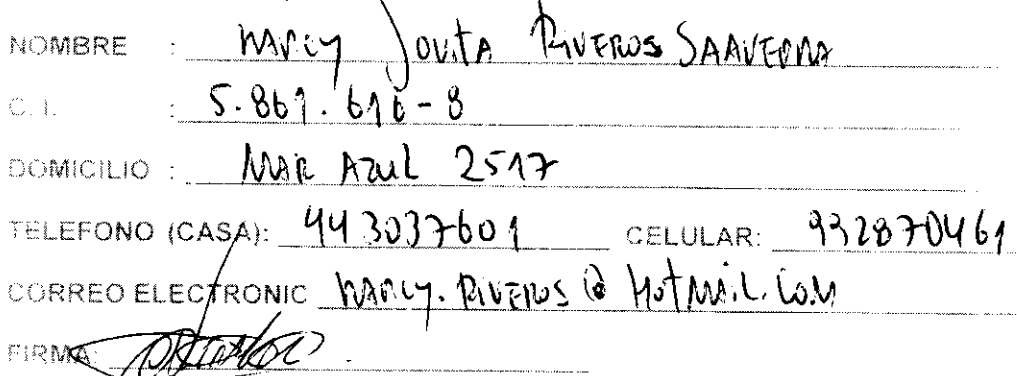 NOMBRE : Nancy Jovita Riveros Saavedra
C. I. : 5.861.616-8
DOMICILIO : Mar Azul 2517
TELEFONO (CASA): 443037601 CELULAR: 9928870461
CORREO ELECTRONIC Nancy.Riveros@Hotmail.com
FIRMA: